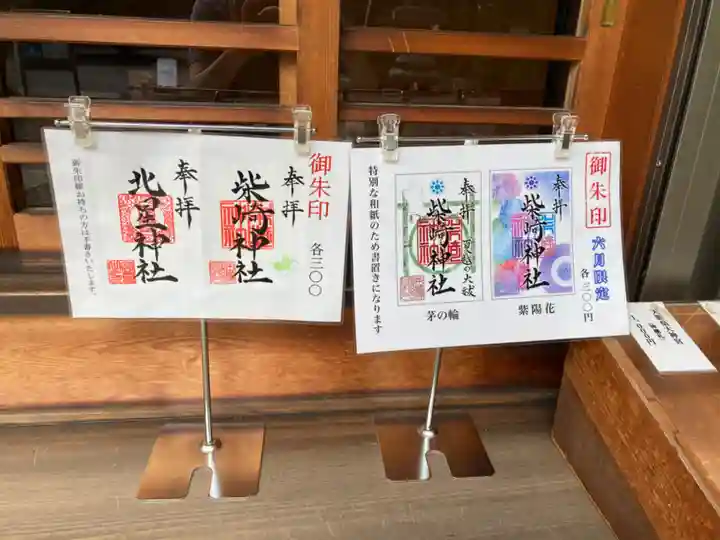 御朱印
各三〇〇
奉拝
柴崎神社
奉拝
北星神社
御朱印帳お持ちの方は手書きいたします。
御朱印
六月限定
各三〇〇円
奉拝
柴崎神社
紫陽花
奉拝
夏越の大祓
柴崎神社
茅の輪
特別な和紙のため書置きになります